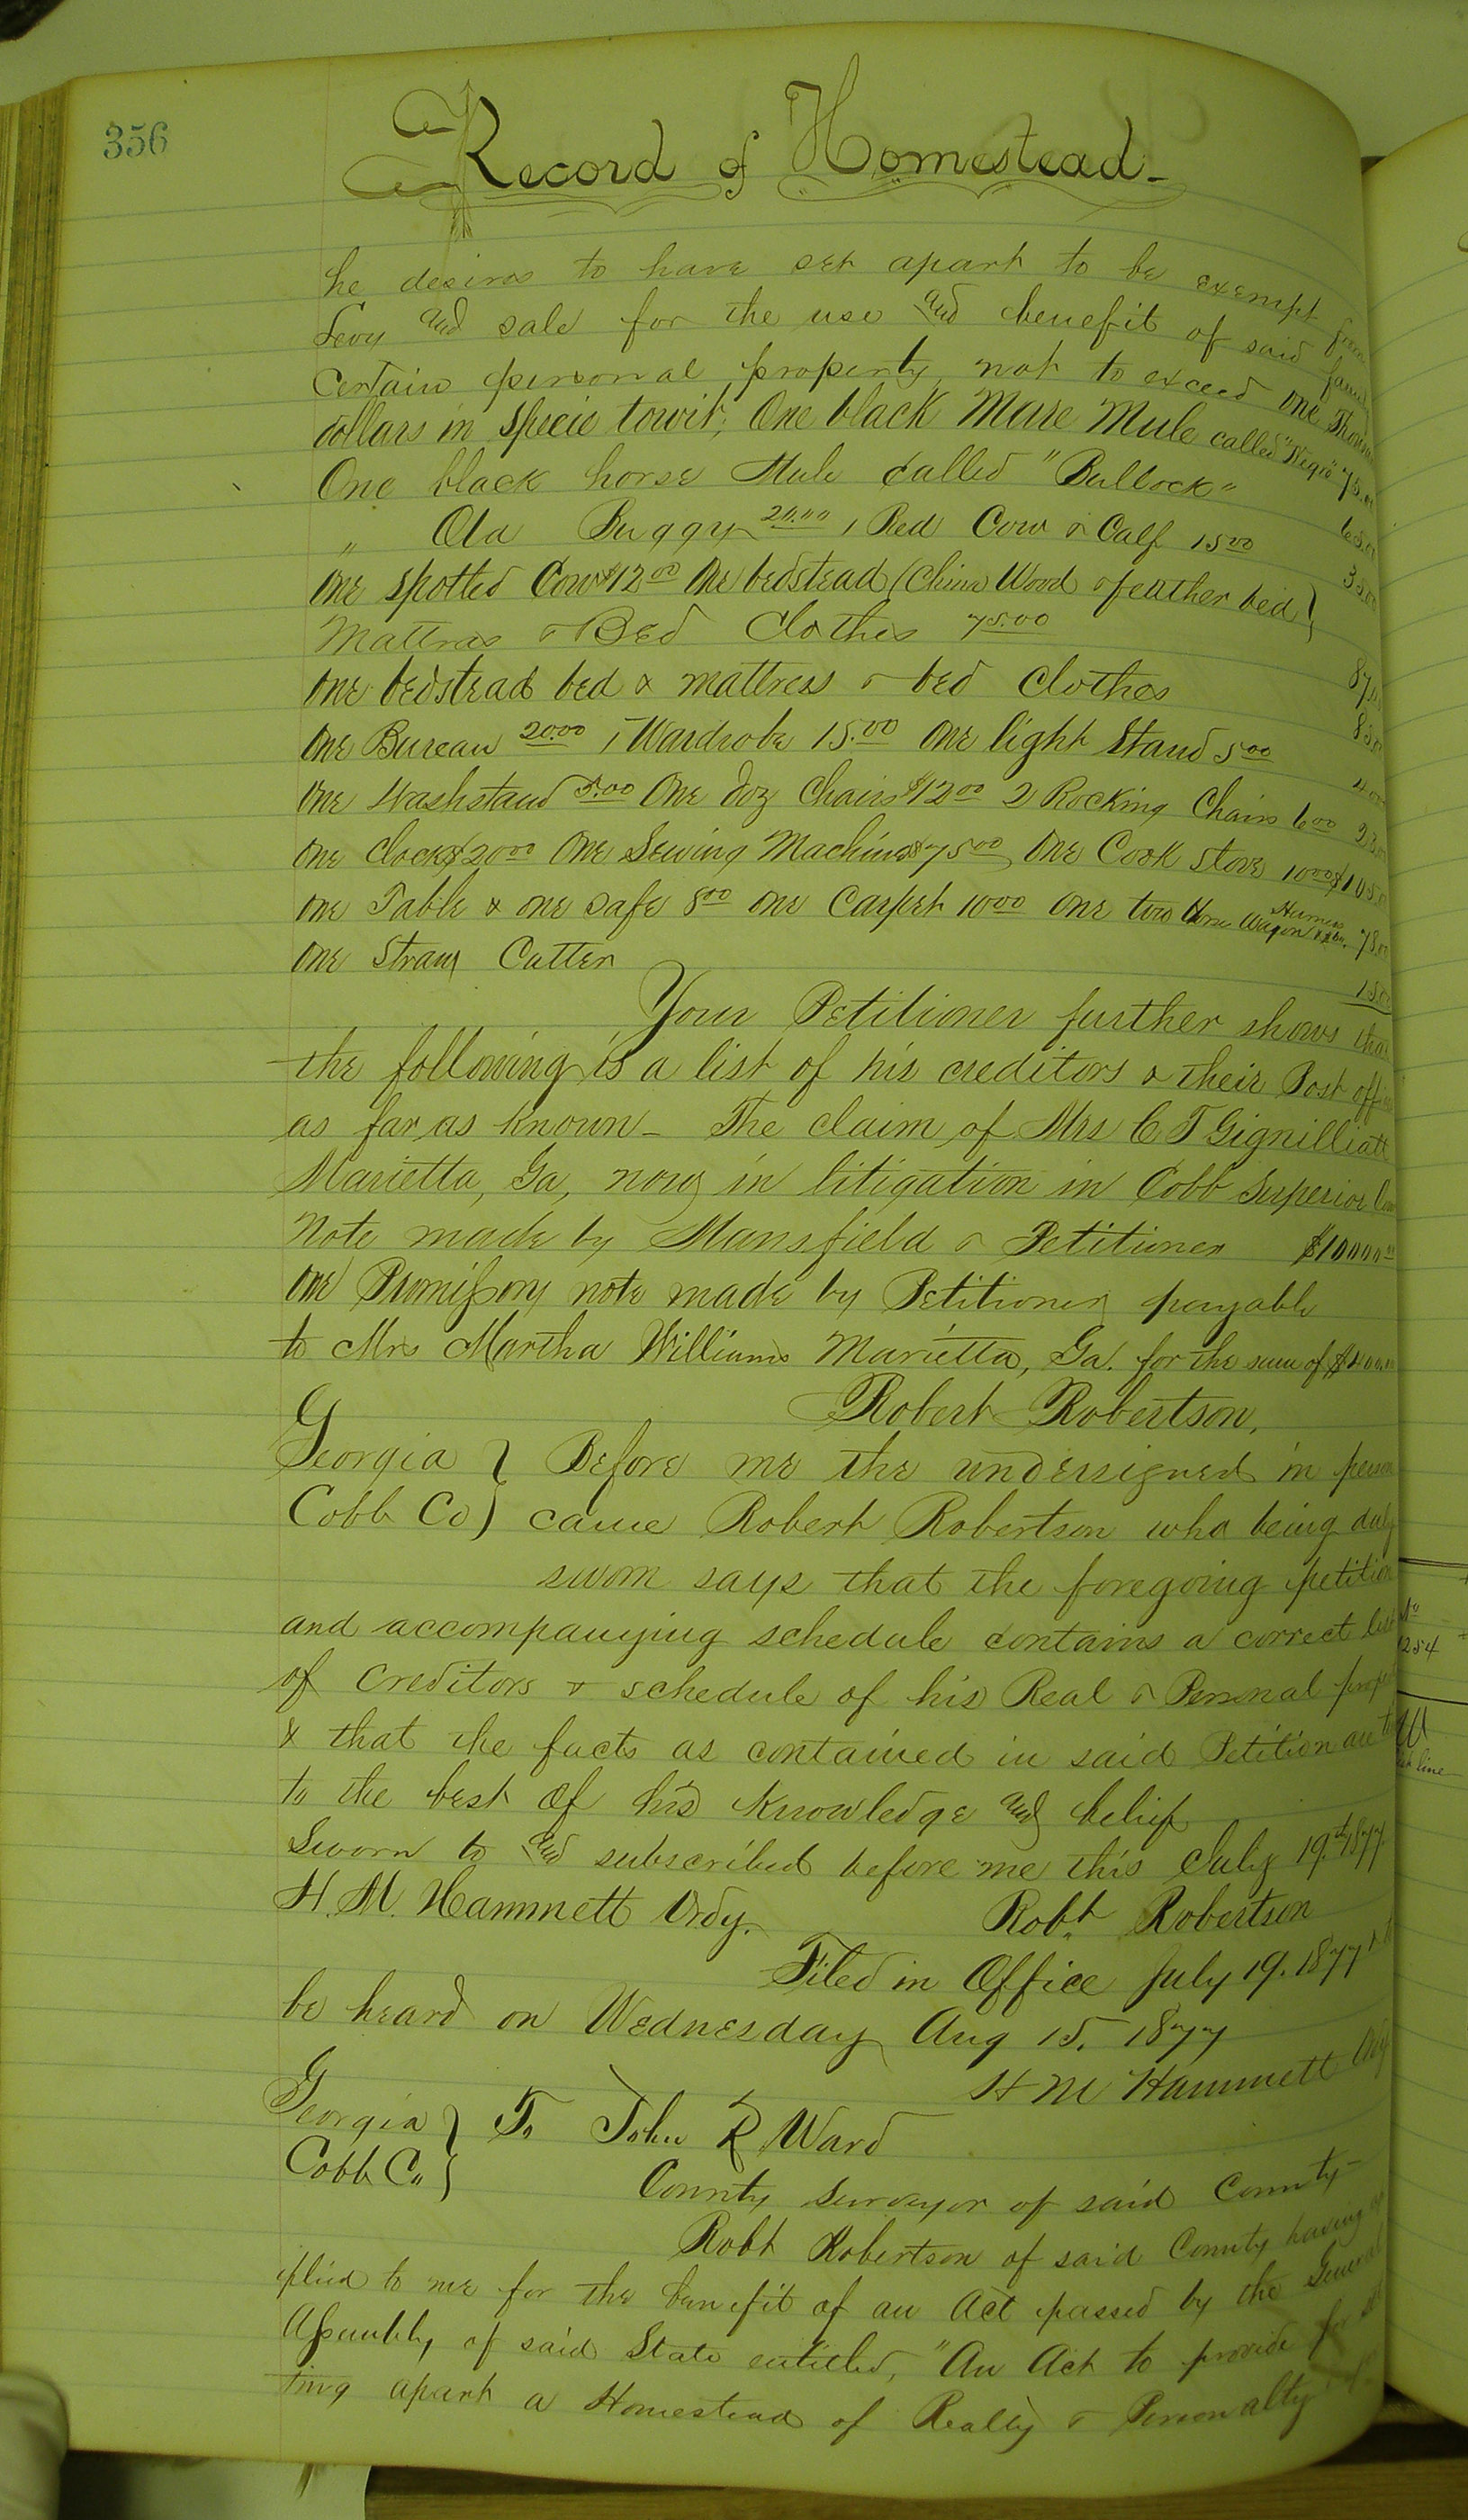 356
Record of Homestead
he desires to have set apart to be exempt from
Levy and sale for the use and benefit of said family
Certain personal property, not to exceed one Thousand
dollars in specie towit; One black Mare Mule called "Negro" 75.00
One black horse Mule called "Bullock" 65.00
" Old Buggy 20.00 1 Red Cow & Calf 15.00 35.00
One spotted Cow $12.00 One bedstead (China Wood & feather bed }
Mattras & Bed Clothes 75.00 87.00
One bedstead bed & mattress & bed Clothes
One Bureau 20.00 1 Wardrobe 15.00 One light Stand 5.00
One Washstand 5.00 One doz Chairs $12.00 2 Rocking Chairs 6.00 23.00
One Clock $20.00 One Sewing Machine $75.00 One Cook Stove 10.00 $105.00
One Table & one safe 8.00 one Carpet 10.00 one two Horse Wagon Harness 78.00
One Straw Cutter 15.00
Your Petitioner further shows that
the following is a list of his creditors & their Post office
as far as known - The claim of Mrs C T Gignilliatt
Marietta, Ga, now in litigation in Cobb Superior Court
Note made by Mansfield & Petitioner $10000.00
One Promissory note made by Petitioner payable
to Mrs Martha Williams Marietta, Ga. for the sum of
Robert Robertson.
Georgia } Before me the undersigned in person
Cobb Co } came Robert Robertson who being duly
sworn says that the foregoing petition
and accompanying schedule contains a correct list
of creditors & schedule of his Real & Personal
& that the facts as contained in said Petition are
to the best of his knowledge and belief
Sworn to and subscribed before me this July 19th 1877
H. M. Hammett Ordy. Robt Robertson
Filed in Office July 19. 1877 to
be heard on Wednesday Aug 15. 1877
H M Hammett Ordy
Georgia } To John R Ward
Cobb Co }
County Surveyor of said County
Robt Robertson of said County having ap
plied to me for the benefit of an Act passed by the General
Assembly of said State entitled, "An Act to provide for set
ting apart a Homestead of Realty & Personalty